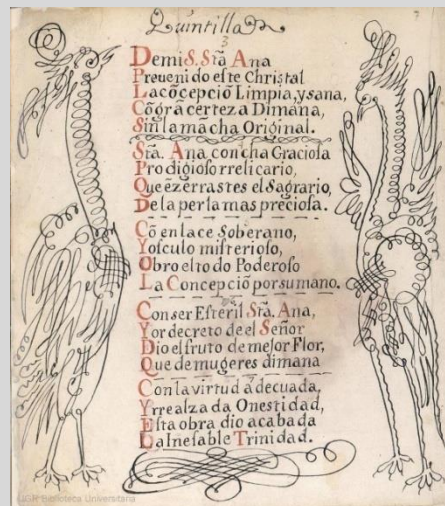 Quintilla
3
Demi S. Stã Ana
Preuenido este Christal
La cõcepciõ Limpia, y sana,
Cõ grã certeza Dimana,
Sin la mãcha Original.
Stã. Ana concha Graciosa
Prodigioso rrelicario,
Que ezerrastes el Sagrario,
De la perla mas preciosa.
Cõ enlace Soberano,
Y osculo misterioso,
Obro el todo Poderoso
La Concepciõ por su mano.
Con ser Esteril Stã. Ana,
Y or decreto de el Señor
Dio el fruto de mejor Flor,
Que de mugeres dimana
Con la virtud ádecuada,
Y rrealzada Onestidad,
Esta obra dio acabada
La Inefable Trinidad.
UGR Biblioteca Universitaria